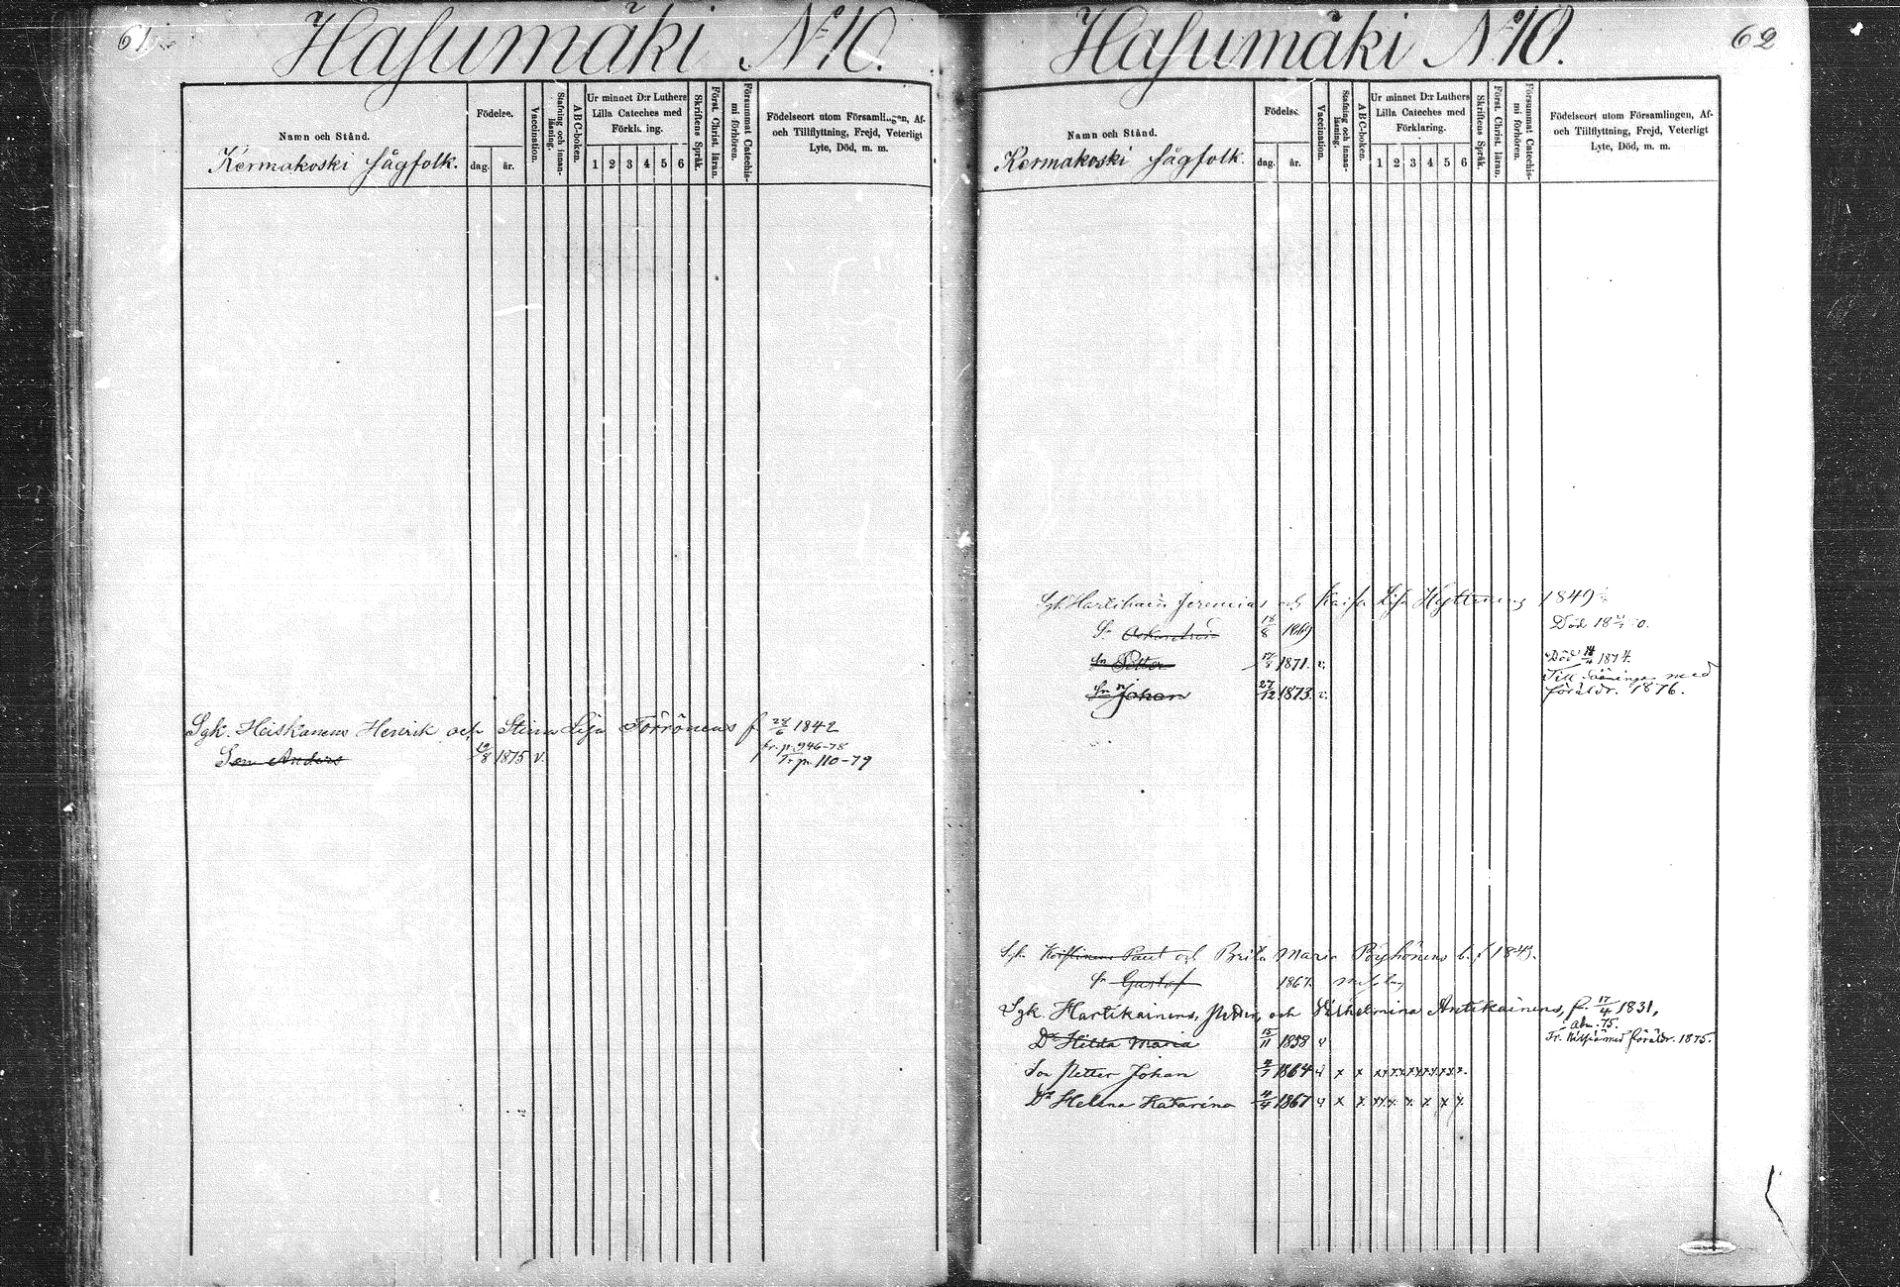 61
Hasumäki № 10.
Namn och Stånd.
Kermakoski Sågfolk.
Födelse.
dag. år.
Vaccination.
Stafning och innanläsning.
ABC-boken.
Ur minnet D:r Luthers
Lilla Cateches med
Förkla ing.
1 2 3 4 5 6
Skriftens Språk.
Först. Christ. läran.
Försummat Catechismi förhören.
Födelseort utom Församlingen, Af-
och Tillflyttning, Frejd, Veterligt
Lyte, Död, m. m.
Sgk. Heiskanens Henrik och Stina Lisa Törrönens f. 28/6 1842
fr. p. 946-78
Son Anders 19/8 1875 v. Tr. p. 110-79
62
Hasumäki № 10.
Namn och Stånd.
Kermakoski Sågfolk.
Födelse
dag. år.
Vaccination.
Stafning och innanläsning.
ABC-boken.
Ur minnet D:r Luthers
Lilla Cateches med
Förklaring.
1 2 3 4 5 6
Skriftens Språk.
Först. Christ. läran.
Försummat Catechismi förhören.
Födelseort utom Församlingen, Af-
och Tillflyttning, Frejd, Veterligt
Lyte, Död, m. m.
Sgk. Jeremias och Kaisa Lisa 1849
Sn 18/8 1869 Död
Sn Petter 1871. v. Död 1874.
Till med
Sn Johan 27/12 1873. v. föräldr. 1876.
Sgk. Paul och Brita Maria Pöyhönens b. f. 1843.
Sn Gustaf 1867.
Sgk. Hartikainens, Petter, och Wilhelmina Antikainens, f. 17/4 1831,
Abm. 75.
Dr Hilda Maria 15/11 1858 v Fr. med föräldr. 1875.
Son Petter Johan 1864 v x x
Dr Helena Katarina 4/4 1867 v x x